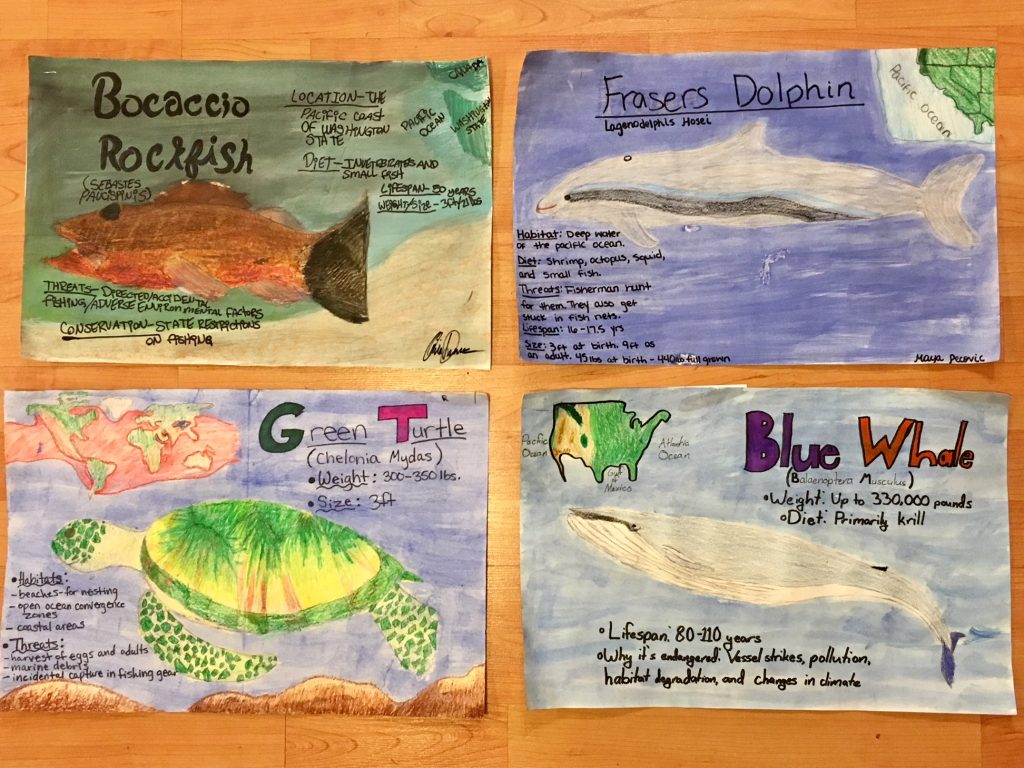 Bocaccio
Rockfish
(SEBASTES
PAUCISPINIS)
LOCATION-THE
PACIFIC COAST
OF WASHINGTON
STATE
DIET-INVETEBRATES AND
SMALL FISH
LIFESPAN-50 YEARS
WEIGHT/SIZE-3FT/21LBS
CANADA
PACIFIC
OCEAN
WASHINGTON
STATE
THREATS-DIRECTED/ACCIDENTAL
FISHING/ADVERSE ENVIRONMENTAL FACTORS
CONSERVATION-STATE RESTRICTIONS
ON FISHING
Frasers Dolphin
Lagenodelphis Hosei
PACIFIC
OCEAN
Habitat: Deep water
of the pacific ocean.
Diet: Shrimp, octopus, squid,
and small fish.
Threats: Fisherman hunt
for them. They also get
stuck in fish nets.
Lifespan: 16-17.5 yrs
Size: 3ft at birth. 9ft as
an adult. 45 lbs at birth - 440lb full grown
Maya Pecovic
Green Turtle
(Chelonia Mydas)
• Weight: 300-350 lbs.
• Size: 3ft
• Habitats:
- beaches-for nesting
- open ocean convergence
zones
- coastal areas
• Threats:
- harvest of eggs and adults
- marine debris
- incidental capture in fishing gear
Pacific
Ocean
Atlantic
Ocean
Gulf
of
Mexico
Blue Whale
(Balaenoptera Musculus)
• Weight: Up to 330,000 pounds
• Diet: Primarily krill
• Lifespan: 80-110 years
• Why it's endangered: Vessel strikes, pollution,
habitat degradation, and changes in climate